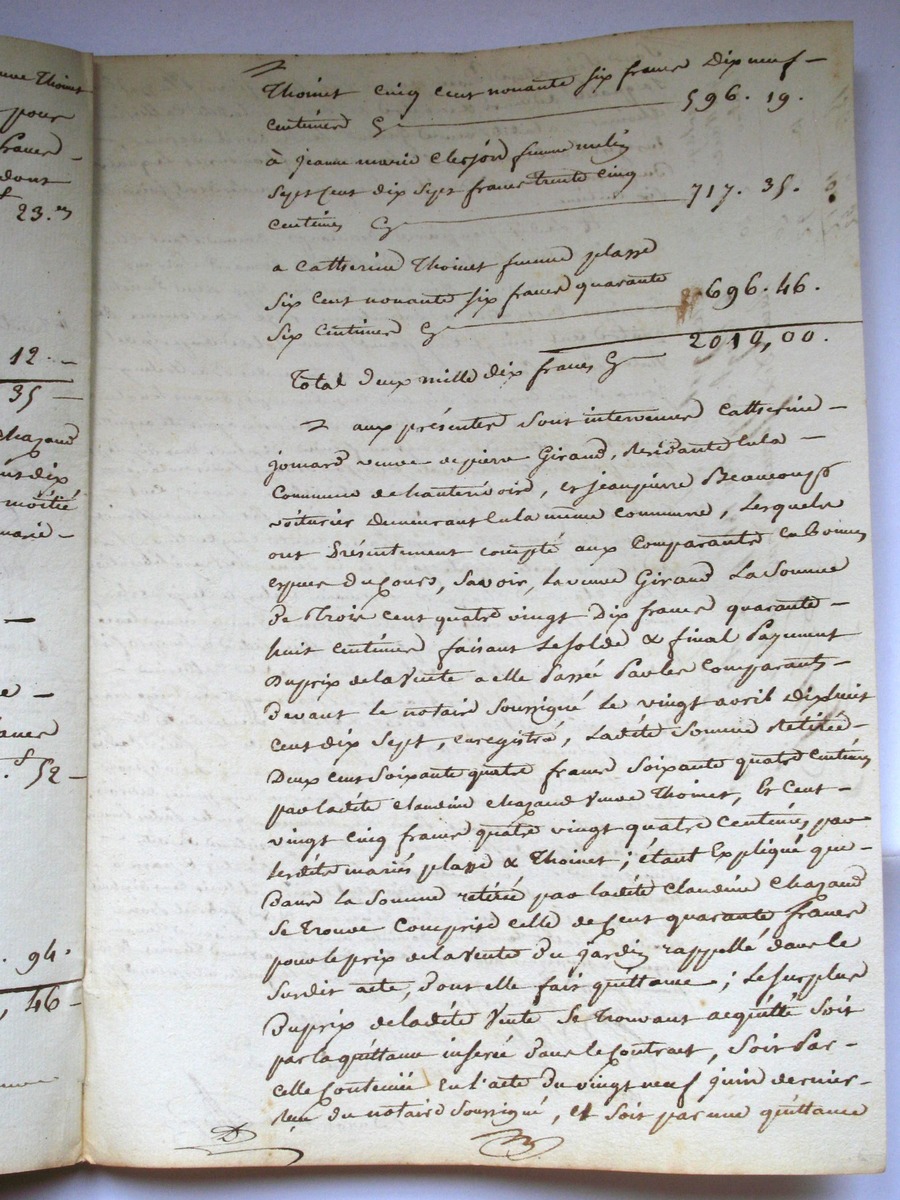 uve Thoinet
pour
francs -
dont
23.
12. -
35 -
chazaud
dix
moitié
marie -
52 -
. 94.
, 46 -
Thoinet cinq cent nonante six francs dix neuf -
centimes Cy 596. 19.
à jeanne marie Clerjon femme melin
Sept Cent dix Sept francs trente Cinq
Centimes Cy 717. 35.
a Catherine Thoinet femme plasse
Six cent nonante six francs quarante
Six Centimes Cy 696. 46.
2010,00.
Total deux mille dix francs Cy
aux présentes Sont intervenues Catherine -
jomard veuve de pierre Giraud, Résidante en la -
Commune de chantenoire, et jean pierre Beaucoup
voiturier demeurant en la même Commune, Lesquels
ont Présentement compté aux Comparants en Bonnes
espèces du Cours, Savoir, La veuve Giraud La Somme
De Trois cent quatre vingt Dix francs quarante -
huit Centimes faisant Le Solde & final Payement
Du prix de la Vente a elle Passée Par les Comparants -
Devant le notaire Soussigné le vingt avril dix huit
Cent dix Sept, enregistré, Ladite Somme Retirée -
Deux cent Soixante quatre francs Soixante quatre Centimes
par ladite Claudine Chazaud Veuve Thoinet, Et Cent -
vingt Cinq francs quatre vingt quatre Centimes par
lesdits mariés plasse & Thoinet; étant Expliqué que -
Dans la Somme retirée par ladite Claudine Chazaud
Se Trouve Comprise Celle de Cent quarante francs
pour le prix de la Vente du jardin rappellé dans le
Susdit acte, dont elle fait quittance; Le Surplus
Du prix de ladite Vente Se Trouvant acquitté Soit
par la quittance inserée dans le Contract, Soit Par -
celle Contenue En l'acte du vingt neuf juin dernier -
reçu du notaire Soussigné, et Soit par une quittance